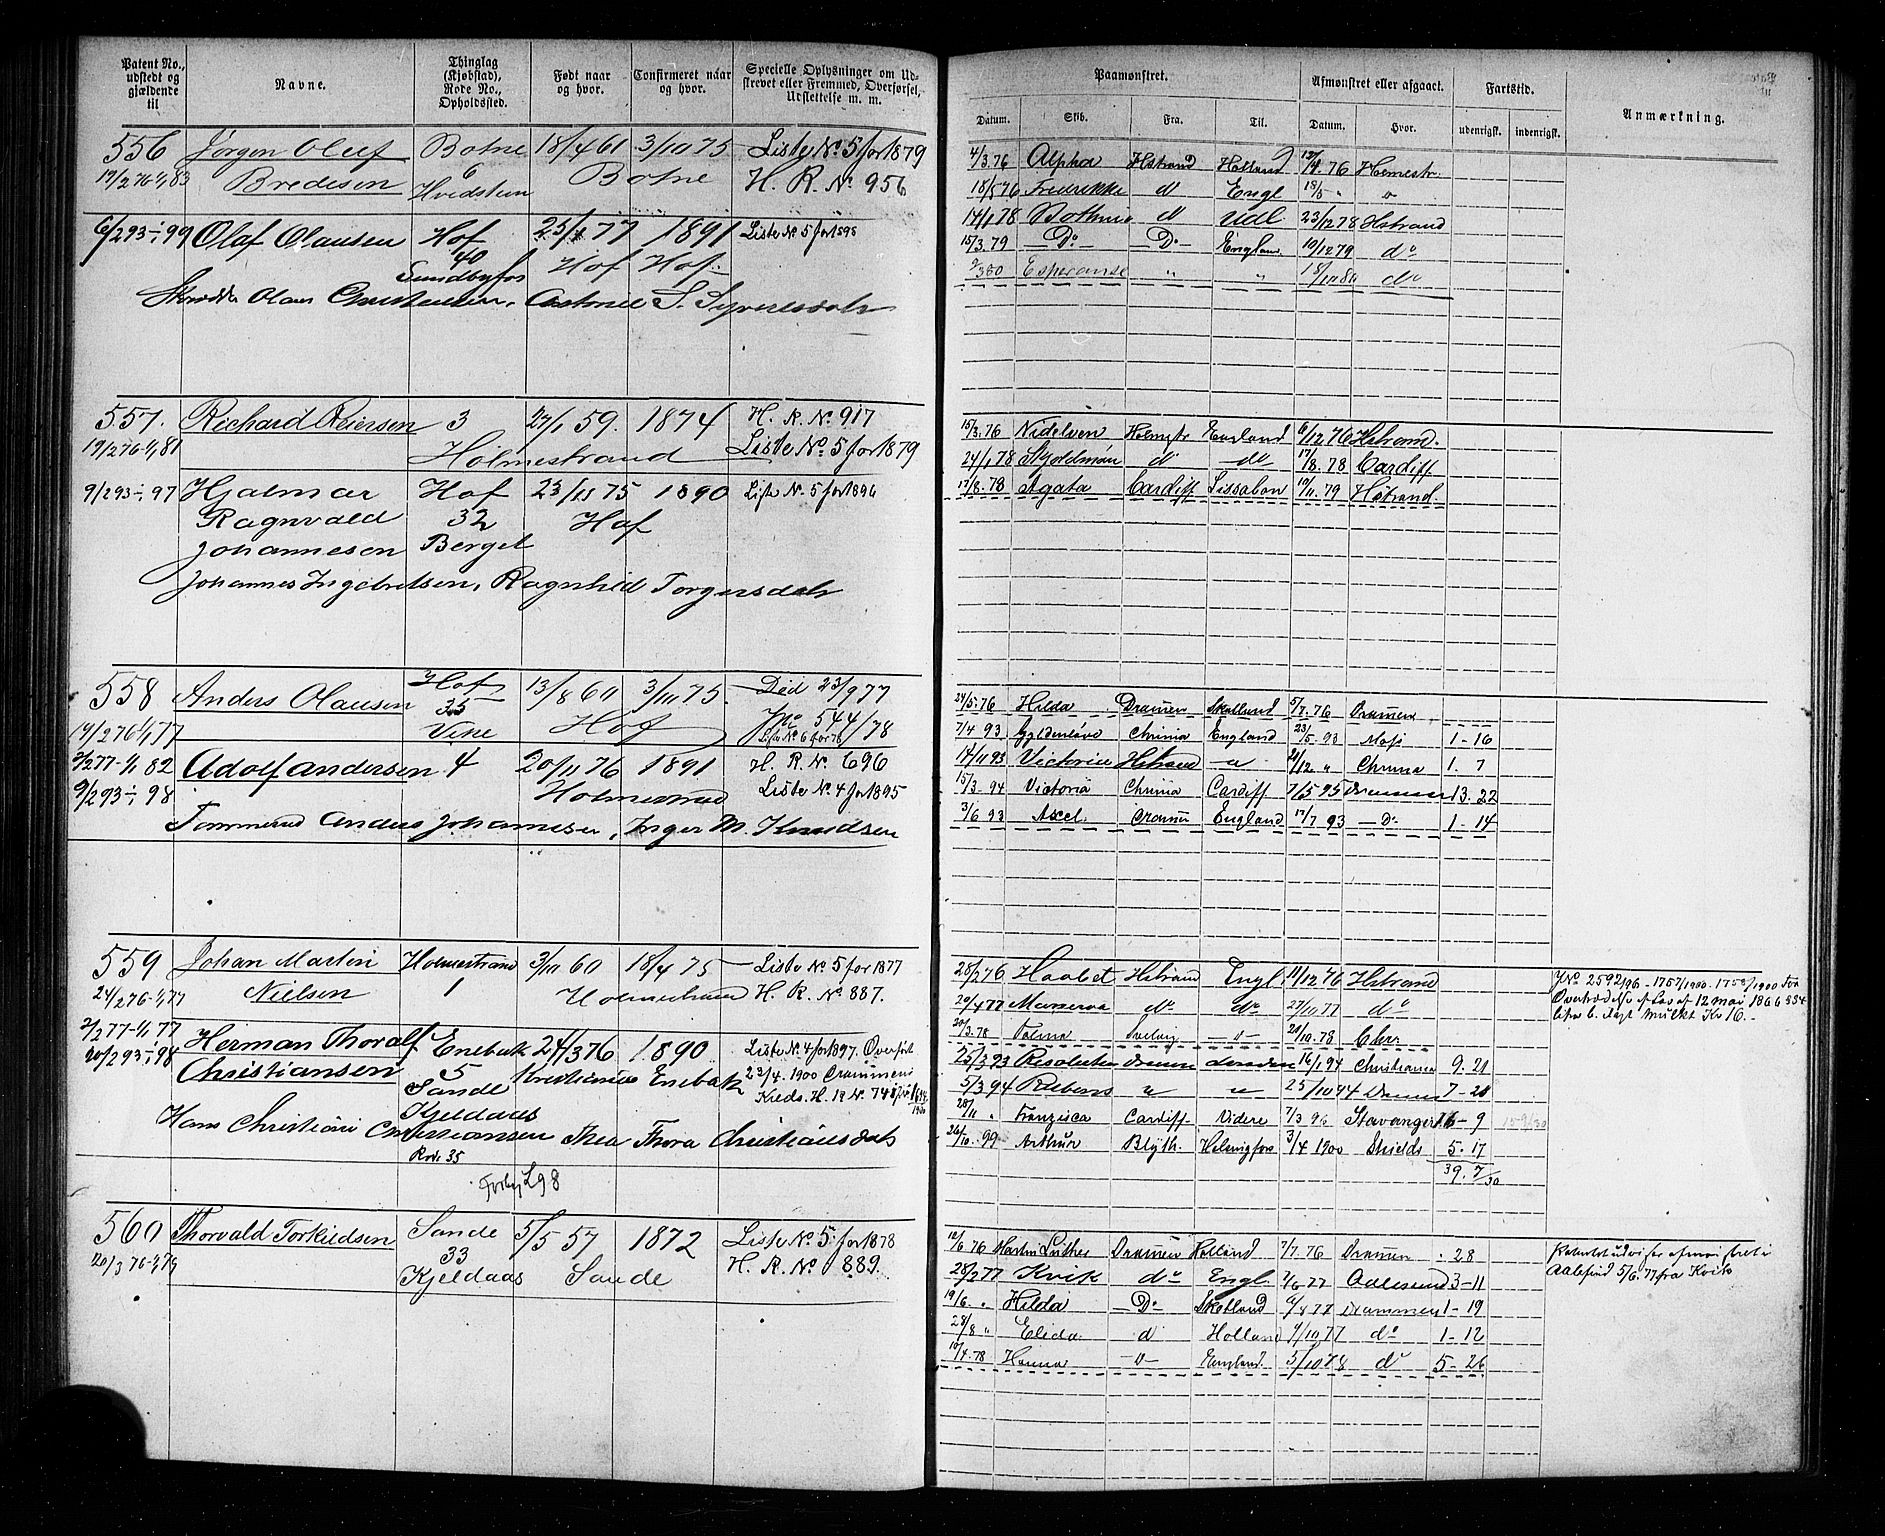 Patent No., udstedt og gjældende til
Navne.
Thinglag (Kjøbstad), Rode No., Opholdssted.
Født naar og hvor.
Confirmeret naar og hvor.
Specielle Oplysninger om Udskrevet eller Fremmed, Overførsel, Udslettelse m. m.
Paamønstret.
Afmønstret eller afgaaet.
Fartstid.
Anmærkning.
Datum. Skib. Fra. Til. Datum. Hvor. udenrigsk. indenrigsk.
556 Jørgen Oluf Botne 18/4 61 3/10 75 Liste No. 5 for 1879
Bredesen 6 Botne H. R. No 956
Hvidsteen
6/2 93 - 99 Olaf Olausen Hof 77 1891 Liste No 5 for 1898
40 Hof Hof
Sundbyfos
Olaus Christensen,
4/3.76 Alpha Hstrand Holland 76 Holmestr.
18/5 76 Fredrikke d Engl 18/8
14/1 78 Bothnia d Udl 23/12 78 Hstrand
15/3.79 Do Do England 19/12 79 do
Esperanse " " do
557. Richard Reiersen 3 27/1 59. 1874 H. R. No 917
Holmestrand Liste No. 5 for 1879
9/2 93 - 97 Hjalmar Hof 23/11 75 1890 Liste No. 5 for 1896
Ragnvald 32 Hof
Johannesen Berget
Johannes Ingebretsen, Ragnhild Torgersdatr
15/3.76 Nidelven Holmstr England 6/12 76 Hstrand.
24/1 78 Skjoldmøn d do 17/8. 78 Cardiff
17/8. 78 Agata Cardiff Lissabon 79 Hstrand.
558 Anders Olausen Hof 13/8 60 3/10 75 Død 23/9 77
35 Hof JNo 544/78
Vike Liste No 6 for 78
2/2 77 - 1/1 82 Adolf Andersen 4 20/11 76 1891 H. R. No 696
9/2 93 - 98 Holmestrand Liste No. 4 for 1895
Tømmermd Anders Johannesen, Inger M. Knudsen
24/5.76 Hilda Drammen Skotland 5/7.76 Drammen
7/4 93 Gyldenløve Chrnia England 23/5. 93 Moss 1-16
14/11 93 Victoria Hstrand " 21/12 " Chrnia 1. 7
15/3. 94 Victoria Chrnia Cardiff 7/5 95 Drammen 13. 22
3/6 93 Axel. Dramn England 17/7 93 Do 1-14
559 Johan Martin Holmestrand 3/10 60 18/4 75 Liste No. 5 for 1877
24/2 76 - 1/1 77 Nielsen 1 Holmestrand H. R. No. 887.
2/2 77 - 1/1 77 Herman Thoralf Enebak 24/3 76 1890. Liste No. 4 for 1897. Overført
20/2 93 - 98 Christiansen 5 Kristiania Enebak 23/4. 1900 Drammens
Sande Kreds. H. R No. 748
Kjeldaas
Hans Christian Christiansen Thea Thora Christiansdatr
Rode 35
28/2 76 Haabet Hstrand Engl 11/12 76 Hstrand
20/4 77 Minerva do do 27/10 77 do
20/3.78 Svelvig 20/10.78 Chra
25/2 93 Resolution Dramn London 16/1 94 Christiania 9. 21
5/3 94 Rubens " " 25/10 94 Dramn 7-20
28/11 " Franzisca Cardiff Videre 7/3 96 Stavanger 16-9
26/10. 99 Arthur Blyth. Helsingfors 3/4 1900 Shields 5. 17
39. 7/30
JNo 2592/96 - 1757/1900. 1758/1900 For
Overtrædelse af Lov af 12 mai 1866 § 34
Litra b. ilagt mulkt Kr 16. -
560 Thorvald Torkildsen Sande 5/5 57 1872 Liste No. 5 for 1878
33 Sande H. R. No 889.
Kjeldaas
12/6 76 Martin Luther Drammen Holland 7/7.76 Drammen . 28
28/2 77 Kvik do Engl. 2/6 77 Aalesund 3-11
19/6. " Hilda Do Skotland 6/8 77 Drammen 1-19
28/8 " Elida d Holland 9/10 77 do 1-12
10/4.78 Hanna England. 5/10 78 do 5-26
Aalesund 5/6.77 fra Kvik